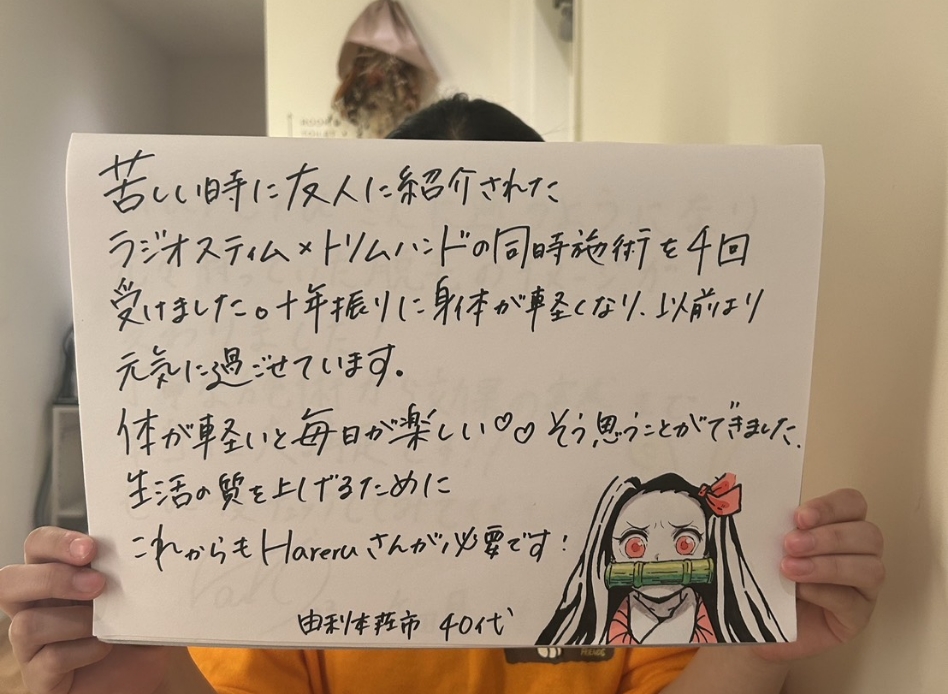 苦しい時に友人に紹介された
ラジオスティム×トリムハンドの同時施術を4回
受けました。十年振りに身体が軽くなり、以前より
元気に過ごせています。
体が軽いと毎日が楽しい♡♡そう思うことができました。
生活の質を上げるために
これからもHareruさんが必要です!
由利本荘市 40代